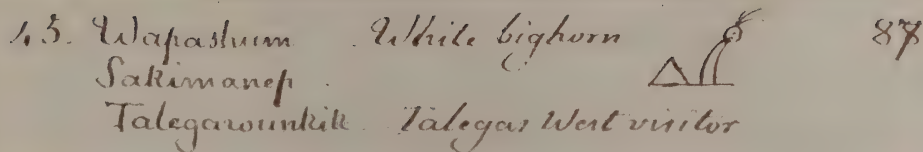 45. Wapashum White bighorn 87
Sakimanep
Talegawunkik Talegas West visitor